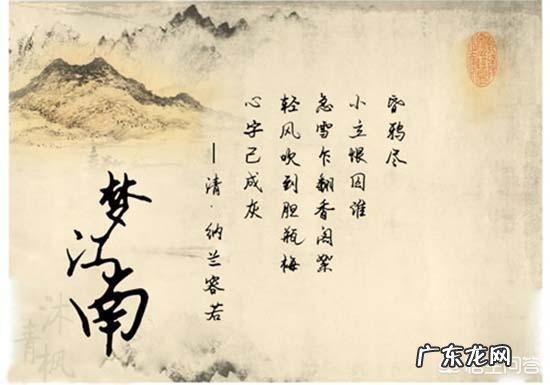 昏鸦尽
小立恨因谁
急雪乍翻香阁絮
轻风吹到胆瓶梅
心字已成灰
—清·纳兰容若
梦江南
沐枫
青
广东龙网